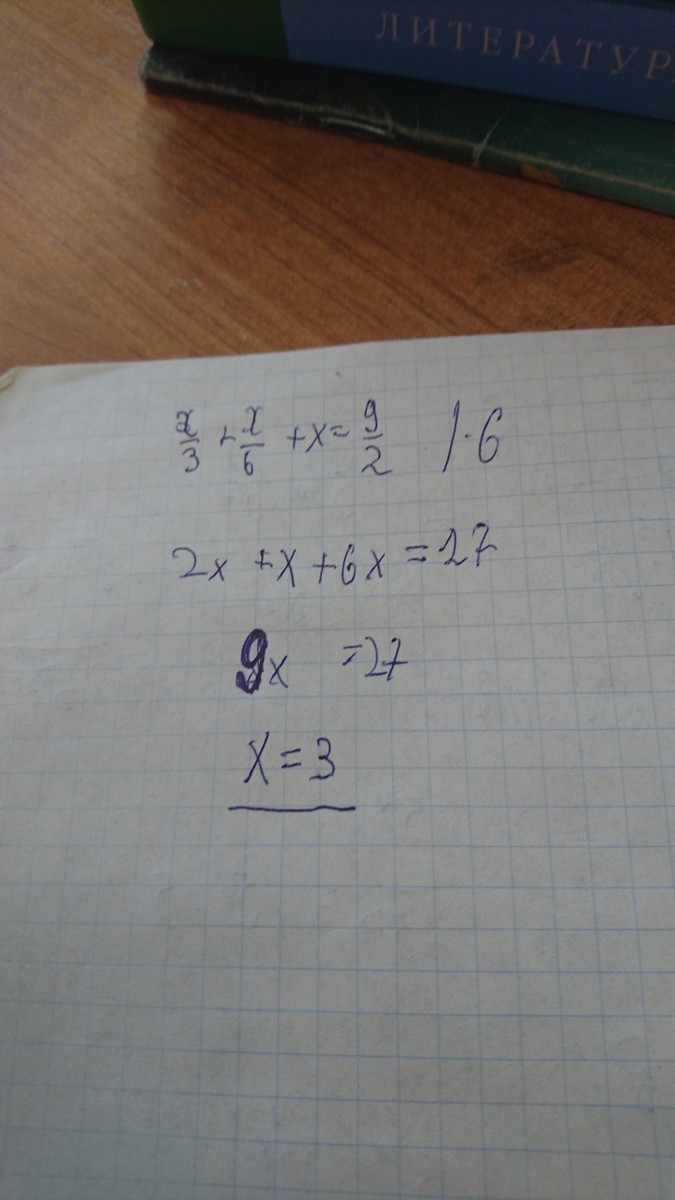 ЛИТЕРАТУР
x/3 + x/6 + x = 9/2 | · 6
2x + x + 6x = 27
9x = 27
x = 3